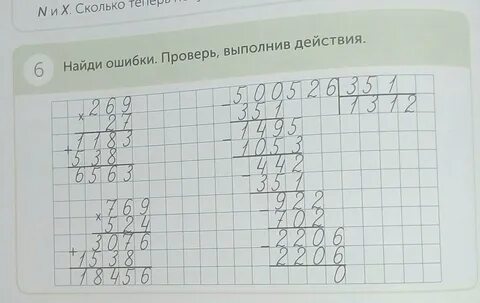 N и X. Сколько теперь
6
Найди ошибки. Проверь, выполнив действия.
× 269
27
+ 1183
538
6563
× 769
324
+ 3076
1538
18456
- 500526 351
351 1312
- 1495
1053
- 442
351
- 922
702
- 2206
2206
0